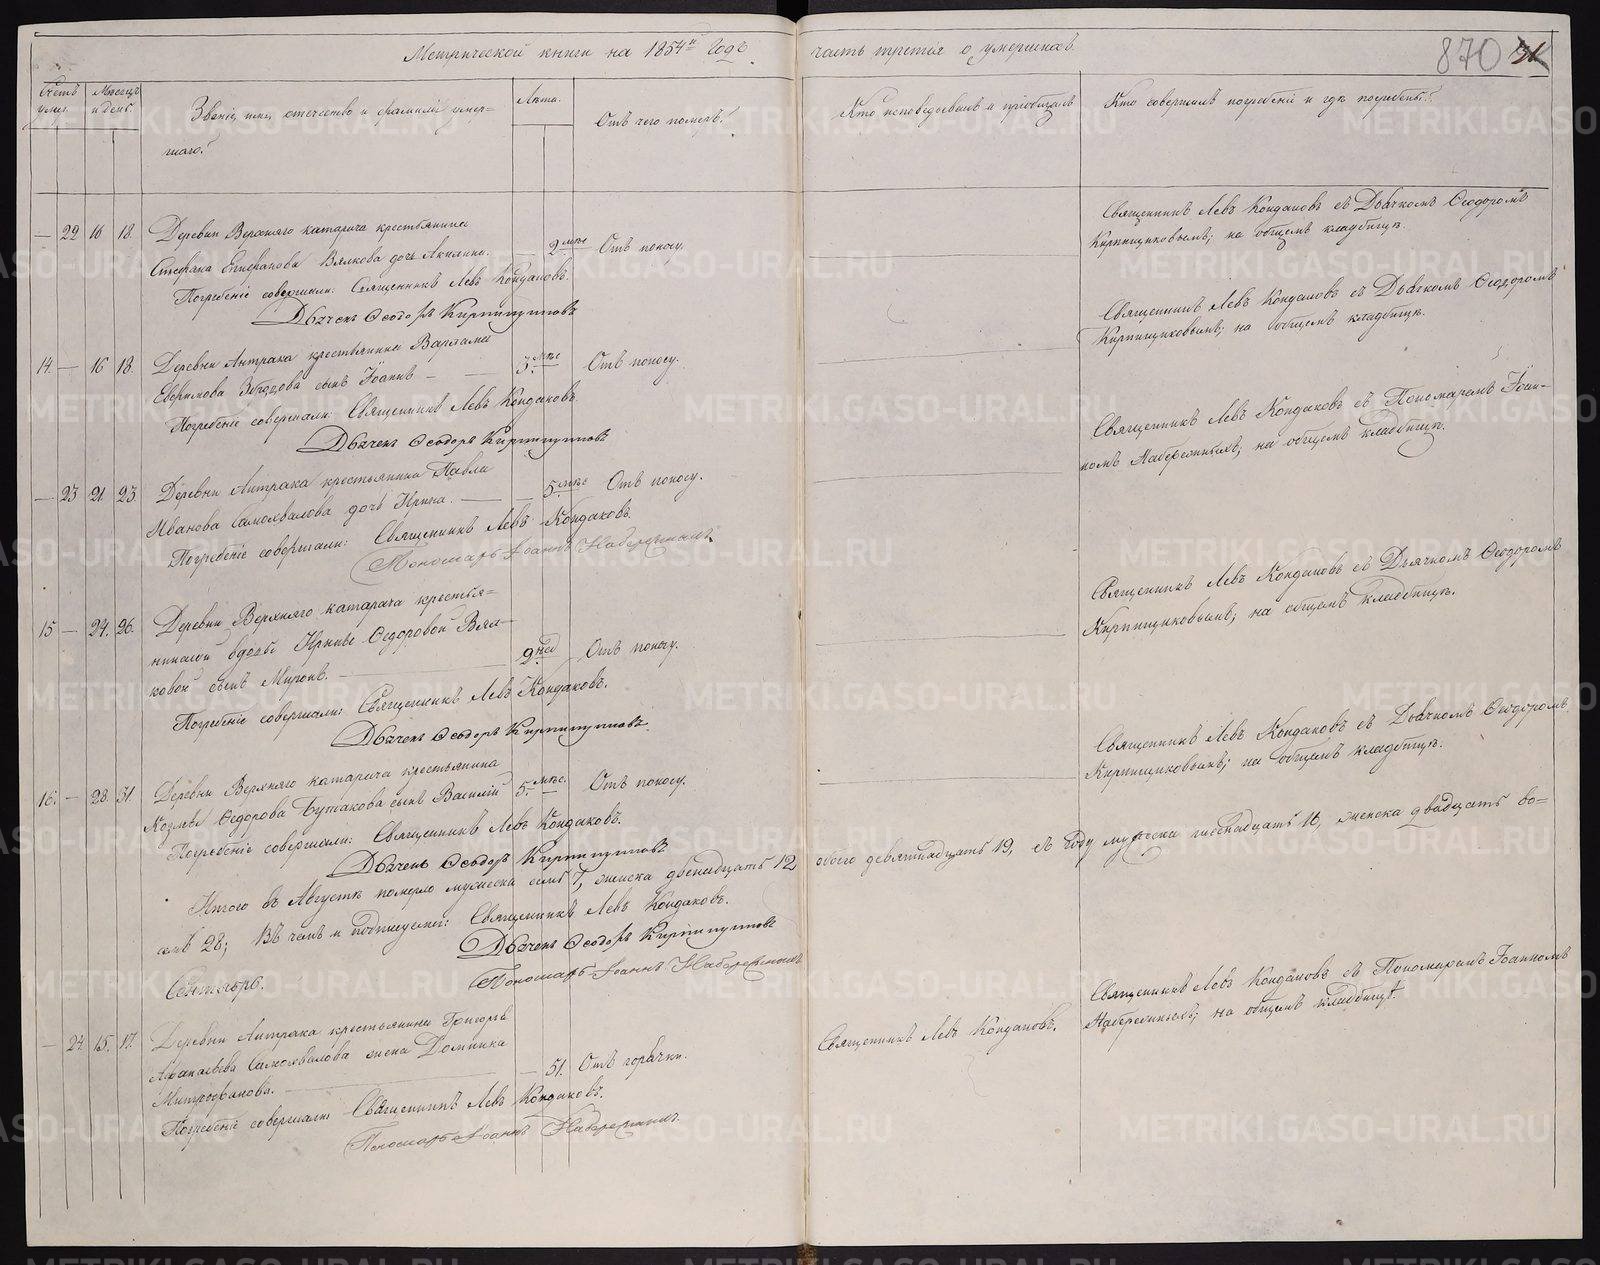 Метрической книги на 1854й годъ часть третія о умершихъ.
870
31
Счетъ умер.
Месяцъ и день.
Званіе, имя, отечество и фамилія умершаго?
Лета.
Отъ чего померъ?
Кто исповедывалъ и пріобщалъ
Кто совершилъ погребеніе и где погребены?
— 22 16 18. Деревни Верхняго катарача крестьянина
Стефана Епифанова Вялкова дочь Акилина. — 2 мес Отъ поносу.
Погребеніе совершали: Священникъ Левъ Кондаковъ.
Дьячекъ Ѳеодоръ Кирпищиковъ
Священникъ Левъ Кондаковъ съ Дьячкомъ Ѳеодоромъ
Кирпищиковымъ; на общемъ кладбище.
14. — 16 18. Деревни Антрака крестьянина Варлама
сынъ Іоаннъ — 3. мес Отъ поносу.
Погребеніе совершали: Священникъ Левъ Кондаковъ.
Дьячекъ Ѳеодоръ Кирпищиковъ
Священникъ Левъ Кондаковъ съ Дьячкомъ Ѳеодоромъ
Кирпищиковымъ; на общемъ кладбище.
— 23 21 23. Деревни Антрака крестьянина Павла
Иванова Самохвалова дочь Ирина. — 5. мес Отъ поносу.
Погребеніе совершали: Священникъ Левъ Кондаковъ.
Пономарь Іоаннъ Набережнинъ.
Священникъ Левъ Кондаковъ съ Пономаремъ Іоан-
номъ Набережнымъ; на общемъ кладбище.
15 — 24. 26. Деревни Верхняго катарача крестья=
нинской вдовы Ирины Ѳедоровой Вял-
ковой сынъ Миронъ. — 2 нед Отъ поносу.
Погребеніе совершали: Священникъ Левъ Кондаковъ.
Дьячекъ Ѳеодоръ Кирпищиковъ.
Священникъ Левъ Кондаковъ съ Дьячкомъ Ѳеодоромъ
Кирпищиковымъ, на общемъ кладбище.
16. — 28. 31 Деревни Верхняго катарача крестьянина
Козмы Ѳедорова Бутакова сынъ Василій 5. мес. Отъ поносу.
Погребеніе совершали: Священникъ Левъ Кондаковъ.
Дьячекъ Ѳеодоръ Кирпищиковъ
Священникъ Левъ Кондаковъ съ Дьячкомъ Ѳеодоромъ
Кирпищиковымъ; на общемъ кладбище.
Итого въ Августе померло мужеска семь 7, женска двенадцать 12 обоего девятнадцать 19, съ году мужеска шеснадцать 16, женска двадцать во=
семь 28; Въ чемъ и подпишуемъ: Священникъ Левъ Кондаковъ.
Дьячекъ Ѳеодоръ Кирпищиковъ
Пономарь Іоаннъ Набережнинъ
Сентябрь.
— 24 15. 17. Деревни Антрака крестьянина Григорья
Афанасьева Самохвалова жена Домника
Митрофанова. — 51. Отъ горячки.
Погребеніе совершали Священникъ Левъ Кондаковъ.
Пономарь Іоаннъ Набережнинъ.
Священникъ Левъ Кондаковъ.
Священникъ Левъ Кондаковъ съ Пономаремъ Іоанномъ
Набережнымъ; на общемъ кладбище.
METRIKI.GASO-URAL.RU